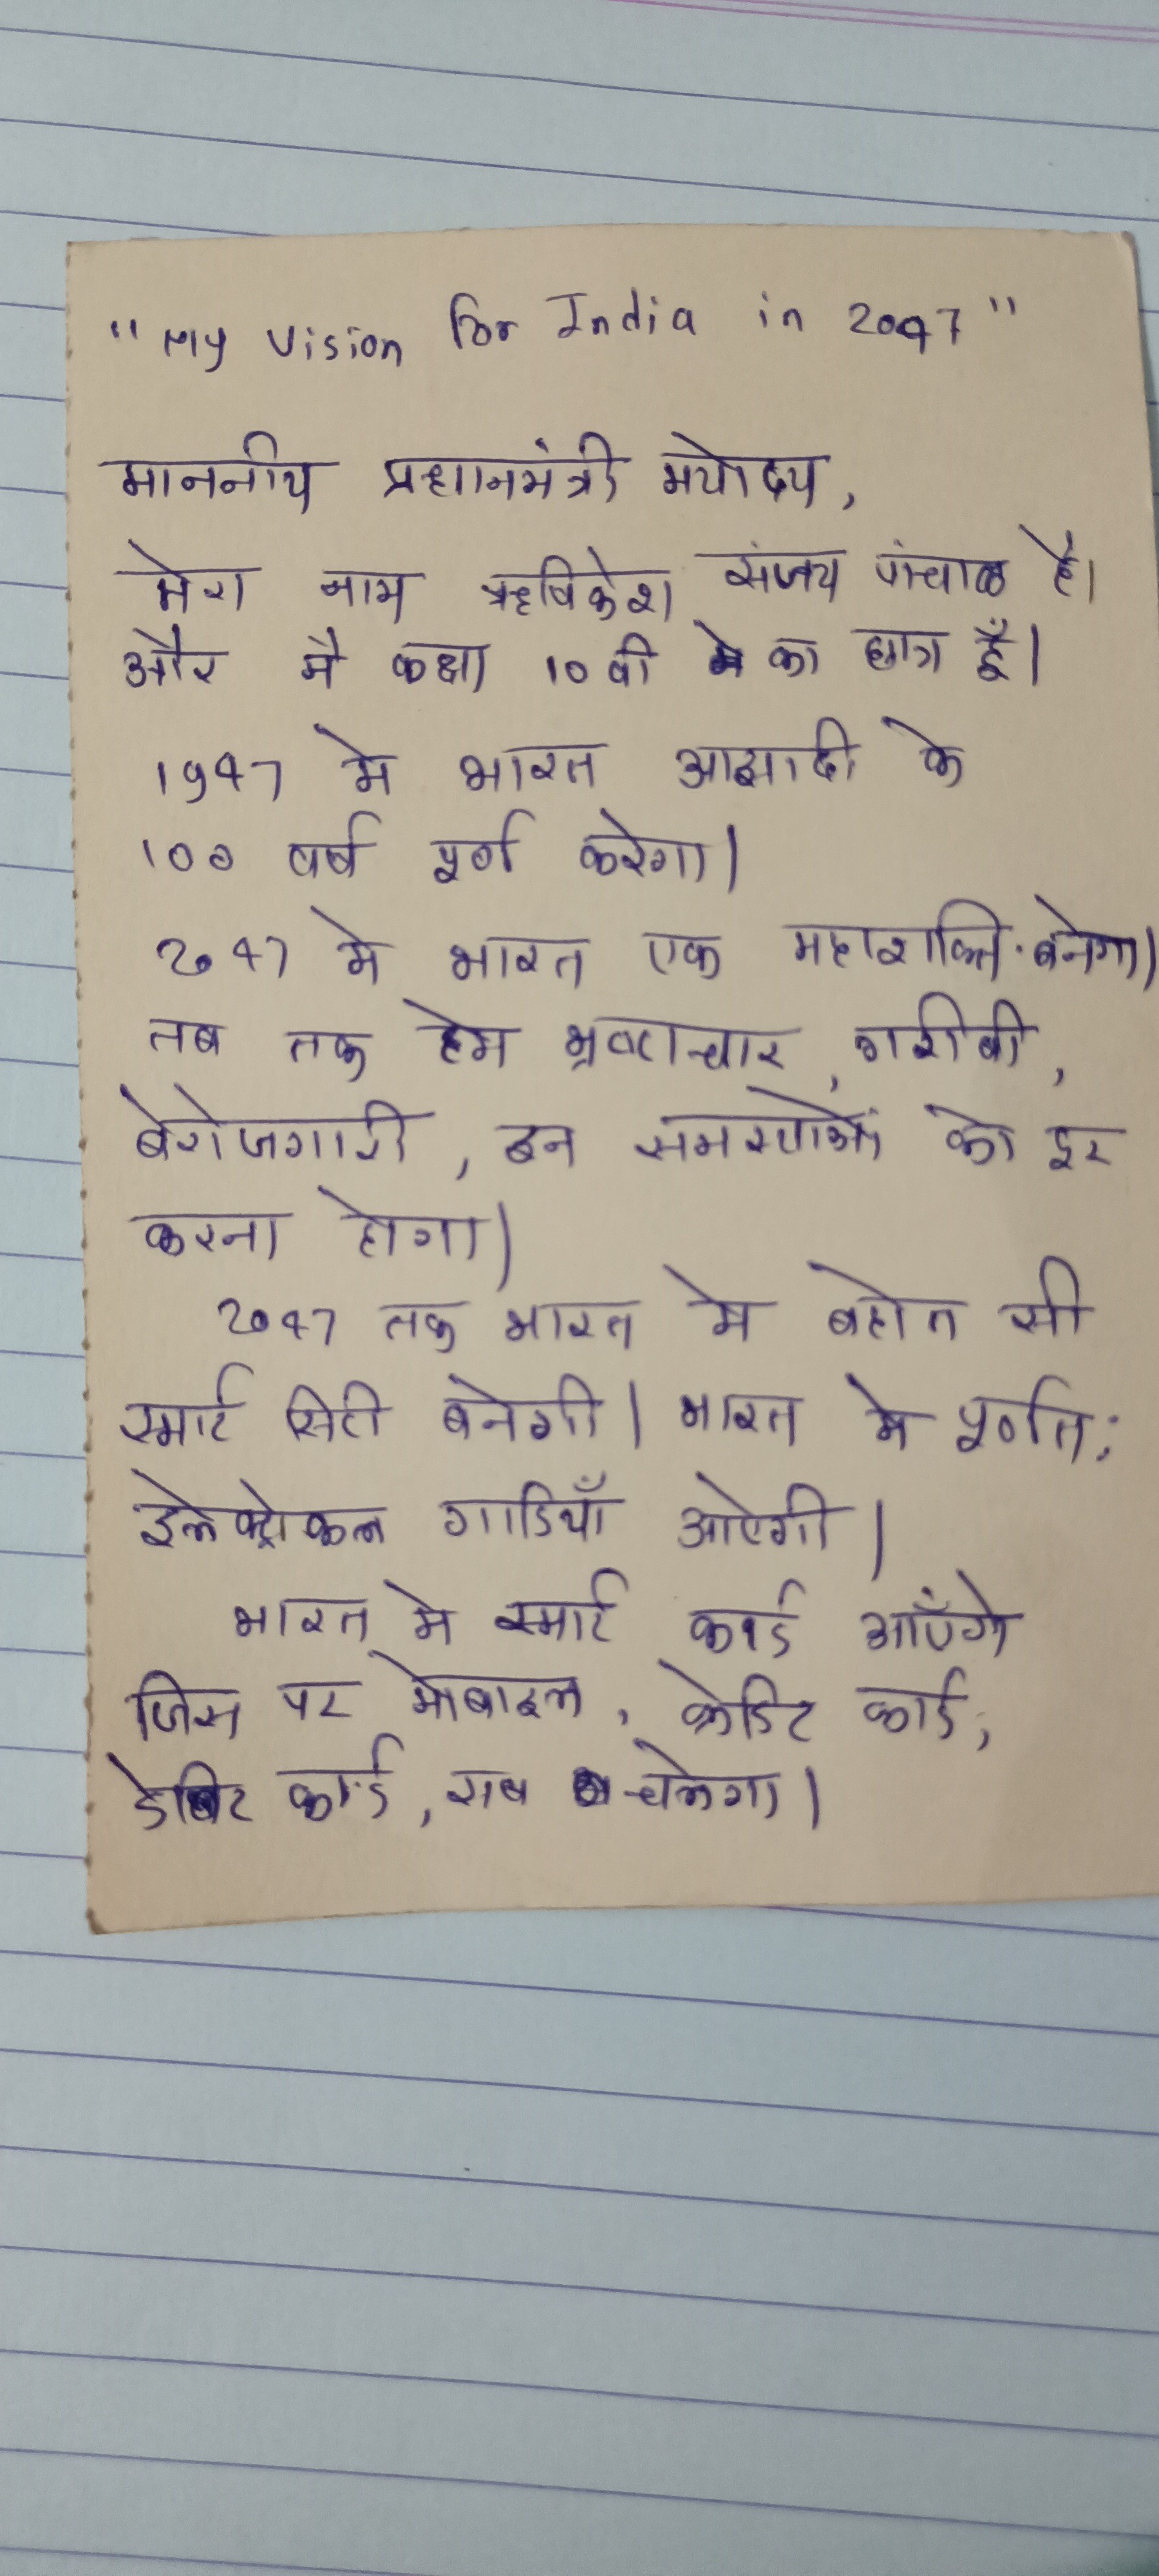 "My vision for India in 2047"
माननीय प्रधानमंत्री मयोदय,
मेरा नाम ऋषिकेश संजय पंचाळ है।
और मै कक्षा 10 वी का छात्र हूँ।
1947 मे भारत आझादी के
100 वर्ष पूर्ण करेगा।
2047 मे भारत एक महाशक्ति बनेगा।
तब तक हमे भ्रष्टाचार, गरीबी,
बेरोजगारी, इन समस्याओं को दूर
करना होगा।
2047 तक भारत मे बहोत सी
स्मार्ट सिटी बनेगी। भारत मे पूर्णति:
इलेक्ट्रोकल गाडियाँ आऐगी।
भारत मे स्मार्ट कार्ड आएँगे
जिस पर मोबाइल, क्रेडिट कार्ड,
डेबिट कार्ड, सब चलेगा।